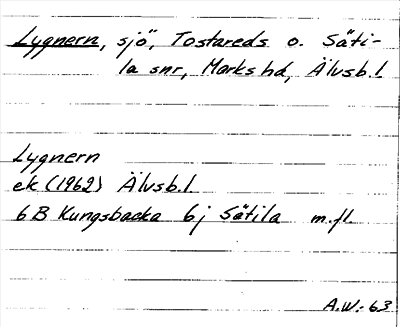 Lygnern, sjö, Tostareds o. Säti-
la snr, Marks hd, Älvsb.l.
Lygnern
ek (1962) Älvsb.l
6B Kungsbacka 6j Sätila m.fl.
A.W.-63